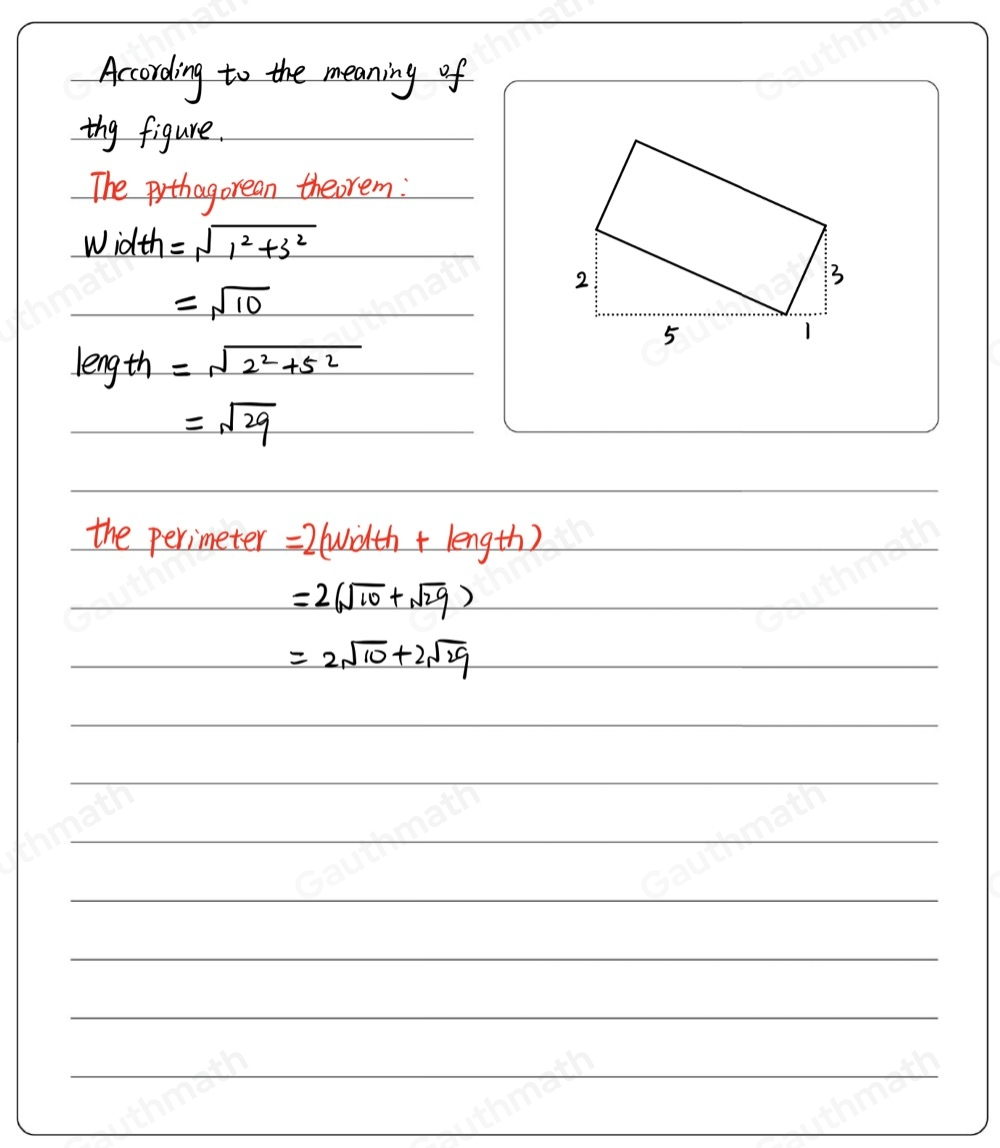 According to the meaning of
thg figure.
The pythagorean theorem:
Width = √1²+3²
= √10
length = √2²+5²
= √29
2
3
5
1
the perimeter =2(width + length)
=2(√10+√29)
= 2√10+2√29
Gauthmath